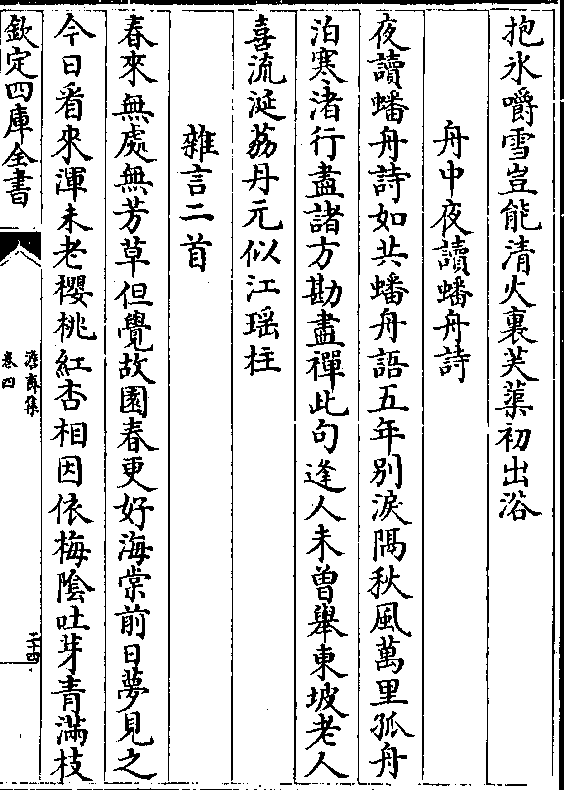 抱氷嚼雪豈能清火裏芙蕖初出浴
舟中夜讀蟠舟詩
夜讀蟠舟詩如共蟠舟語五年别淚隔秋風萬里孤舟
泊寒渚行盡諸方勘盡禪此句逢人未曾舉東坡老人
喜流涎荔丹元似江瑶柱
雜言二首
春來無處無芳草但覺故園春更好海棠前日夢見之
今日看來渾未老櫻桃紅杏相因依梅陰吐芽青滿枝
欽定四庫全書
澹齋集
卷四
二十四